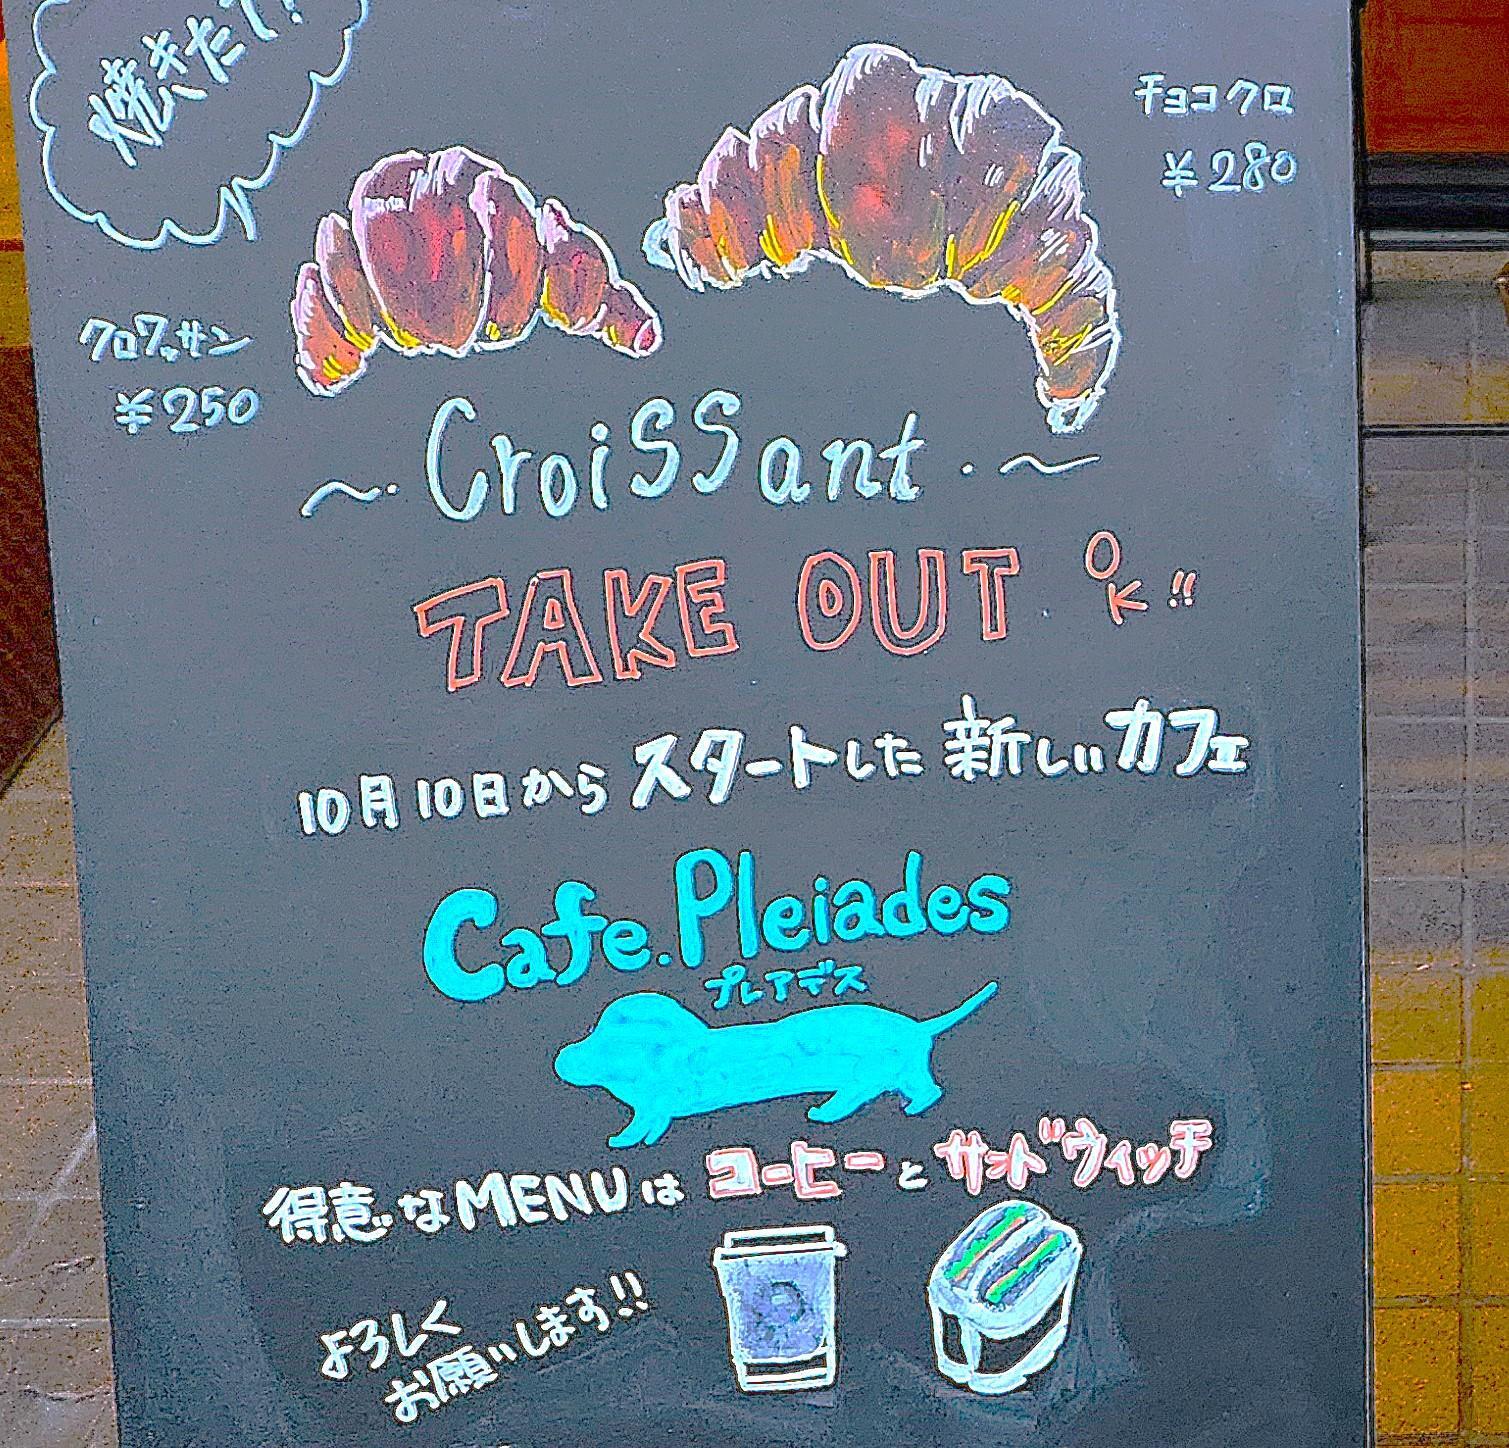 焼きたて!
チョコクロ
¥280
クロワッサン
¥250
~・Croissant・~
TAKE OUT OK!!
10月10日からスタートした新しいカフェ
Cafe.Pleiades
プレアデス
得意なMENUはコーヒーとサンドウィッチ
よろしく
お願いします!!